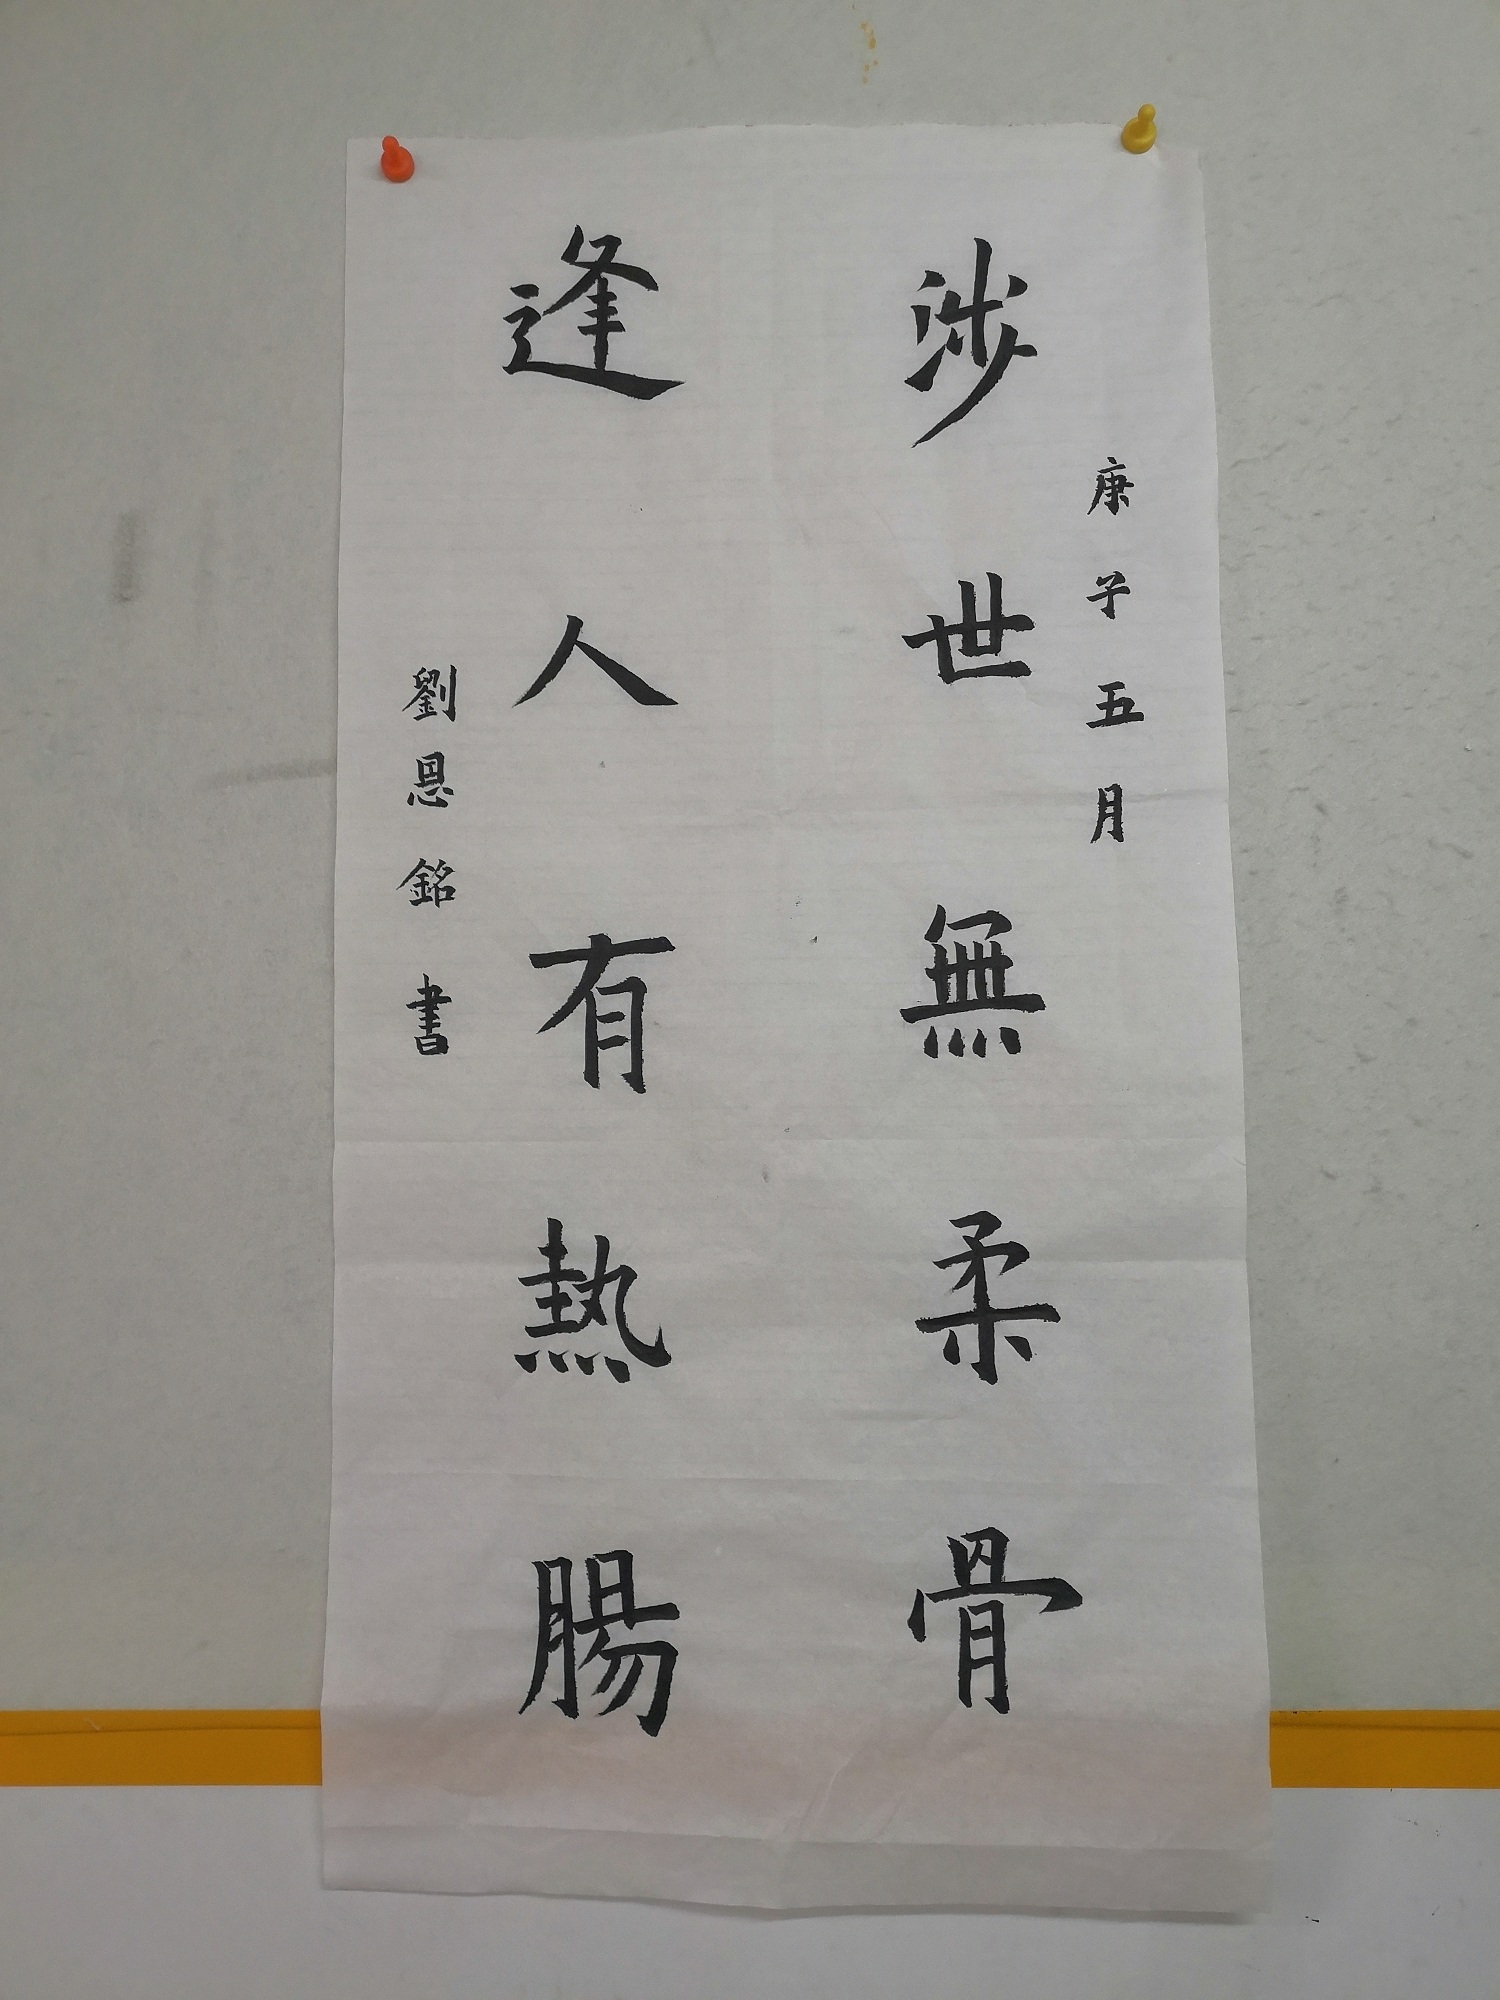 庚子五月
涉世無柔骨
逢人有熱腸
劉恩銘書